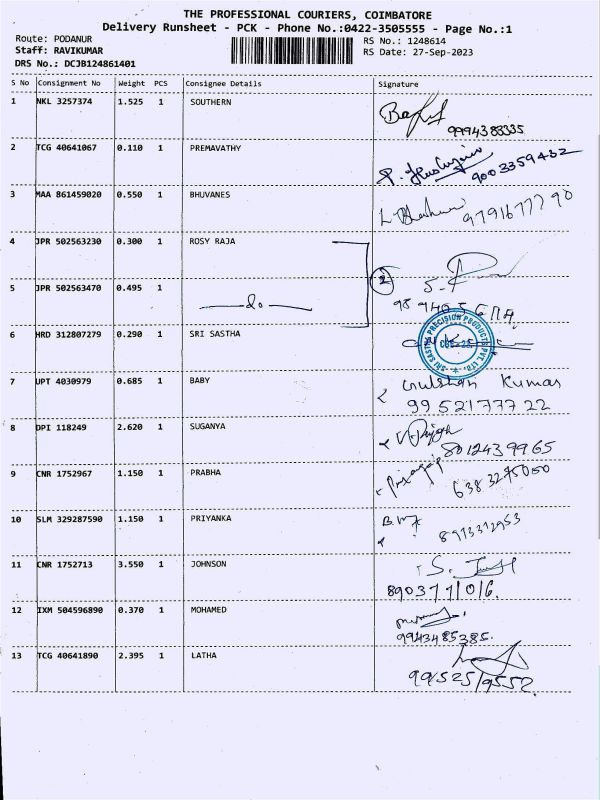 THE PROFESSIONAL COURIERS, COIMBATORE
Delivery Runsheet - PCK - Phone No.:0422-3505555 - Page No.:1
Route: PODANUR
RS No.: 1248614
Staff: RAVIKUMAR
RS Date: 27-Sep-2023
DRS No.: DCJB124861401
S No Consignment No Weight PCS Consignee Details Signature
1 NKL 3257374 1.525 1 SOUTHERN
9994383335
2 TCG 40641067 0.110 1 PREMAVATHY
9003359432
3 MAA 861459020 0.550 1 BHUVANES
9791677790
4 JPR 502563230 0.300 1 ROSY RAJA
2
5 JPR 502563470 0.495 1
do
6 HRD 312807279 0.290 1 SRI SASTHA
PRECISION PRODUCTS PVT. LTD.
7 UPT 4030979 0.685 1 BABY Gulshan Kumar
9952177722
8 DPI 118249 2.620 1 SUGANYA
8012439965
9 CNR 1752967 1.150 1 PRABHA
6383275050
10 SLM 329287590 1.150 1 PRIYANKA
11 CNR 1752713 3.550 1 JOHNSON
12 IXM 504596890 0.370 1 MOHAMED
9943485385.
13 TCG 40641890 2.395 1 LATHA